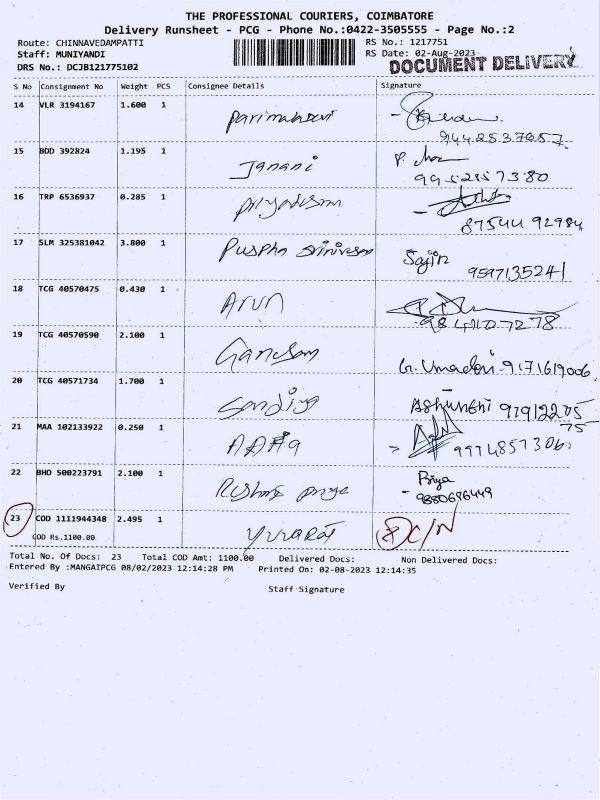 THE PROFESSIONAL COURIERS, COIMBATORE
Delivery Runsheet - PCG - Phone No.:0422-3505555 - Page No.:2
Route: CHINNAVEDAMPATTI RS No.: 1217751
Staff: MUNIYANDI RS Date: 02-Aug-2023
DRS No.: DCJB121775102 DOCUMENT DELIVERY
S No Consignment No Weight PCS Consignee Details Signature
14 VLR 3194167 1.600 1
15 BDD 392824 1.195 1 Janani
16 TRP 6536937 0.285 1
87544 92984
17 SLM 325381042 3.800 1 Puspha Srinivasan Sajin
9597135241
18 TCG 40570475 0.430 1 Arun
19 TCG 40570590 2.100 1 Ganesan G. Umadevi 9171619006
20 TCG 40571734 1.700 1 Sandiya
21 MAA 102133922 0.250 1
9994857306
22 BHO 500223791 2.100 1 Priya
9880696449
23 COD 1111944348 2.495 1 Yuvaraj
COD Rs.1100.00
Total No. Of Docs: 23 Total COD Amt: 1100.00 Delivered Docs: Non Delivered Docs:
Entered By :MANGAIPCG 08/02/2023 12:14:28 PM Printed On: 02-08-2023 12:14:35
Verified By Staff Signature